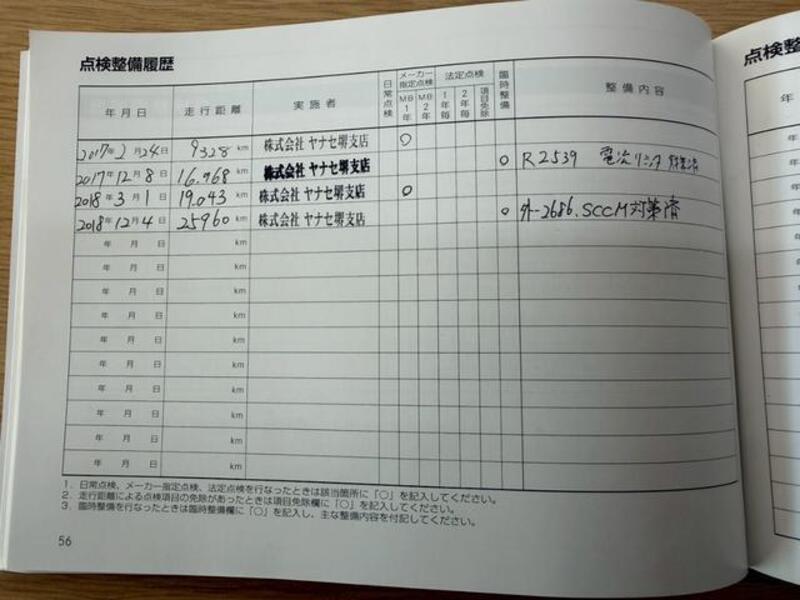 点検整備履歴
点検整
年月日 走行距離 実施者 日常点検 メーカー指定点検 MB1年 MB2年 法定点検 1年毎 2年毎 項目免除 臨時整備 整備内容
年
2017年2月24日 9328km 株式会社 ヤナセ堺支店 ○
2017年12月8日 16.968km 株式会社 ヤナセ堺支店 ○ R2539 電流リミッタ 対策済
2018年3月1日 19.043km 株式会社 ヤナセ堺支店 ○
2018年12月4日 25960km 株式会社 ヤナセ堺支店 ○ 外-2686.SCCM対策済
年 月 日 km
年 月 日 km
年 月 日 km
年 月 日 km
年 月 日 km
年 月 日 km
年 月 日 km
年 月 日 km
年 月 日 km
年 月 日 km
1. 日常点検、メーカー指定点検、法定点検を行なったときは該当箇所に「○」を記入してください。
2. 走行距離による点検項目の免除があったときは項目免除欄に「○」を記入してください。
3. 臨時整備を行なったときは臨時整備欄に「○」を記入し、主な整備内容を付記してください。
56